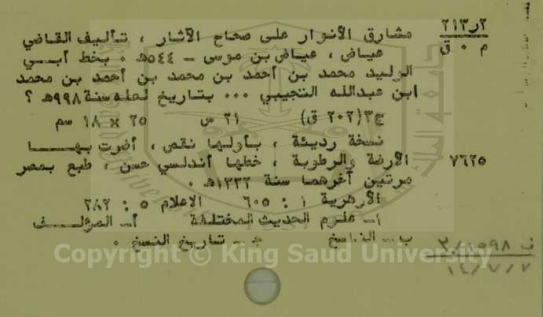 ٢١٣ر٢
م ٠ ق
مشارق الأنوار على صحاح الآثار ، تأليف القاضي
عياض ، عياض بن موسى - ٥٤٤هـ ٠ بخط أبي
الوليد محمد بن أحمد بن محمد بن أحمد بن محمد
ابن عبدالله التجيبي ٠٠٠ بتاريخ لعله سنة ٩٩٨هـ ؟
ج٣(٢٠٢ ق) ٢١ س ٢٥ × ١٨ سم
نسخة رديئة ، بأولها نقص ، أضرت بها
٧٦٢٥ الأرضة والرطوبة ، خطها أندلسي حسن ، طبع بمصر
مرتين آخرهما سنة ١٣٣٢هـ ٠
الأزهرية ١ : ٦٠٥ الاعلام ٥ : ٢٨٢
أ- علوم الحديث المختلفة أ- المؤلف
ب - الناسخ ج - تاريخ النسخ ٠
Copyright © King Saud University
ف ١٠٩٨/٣
١٤/٧/٧